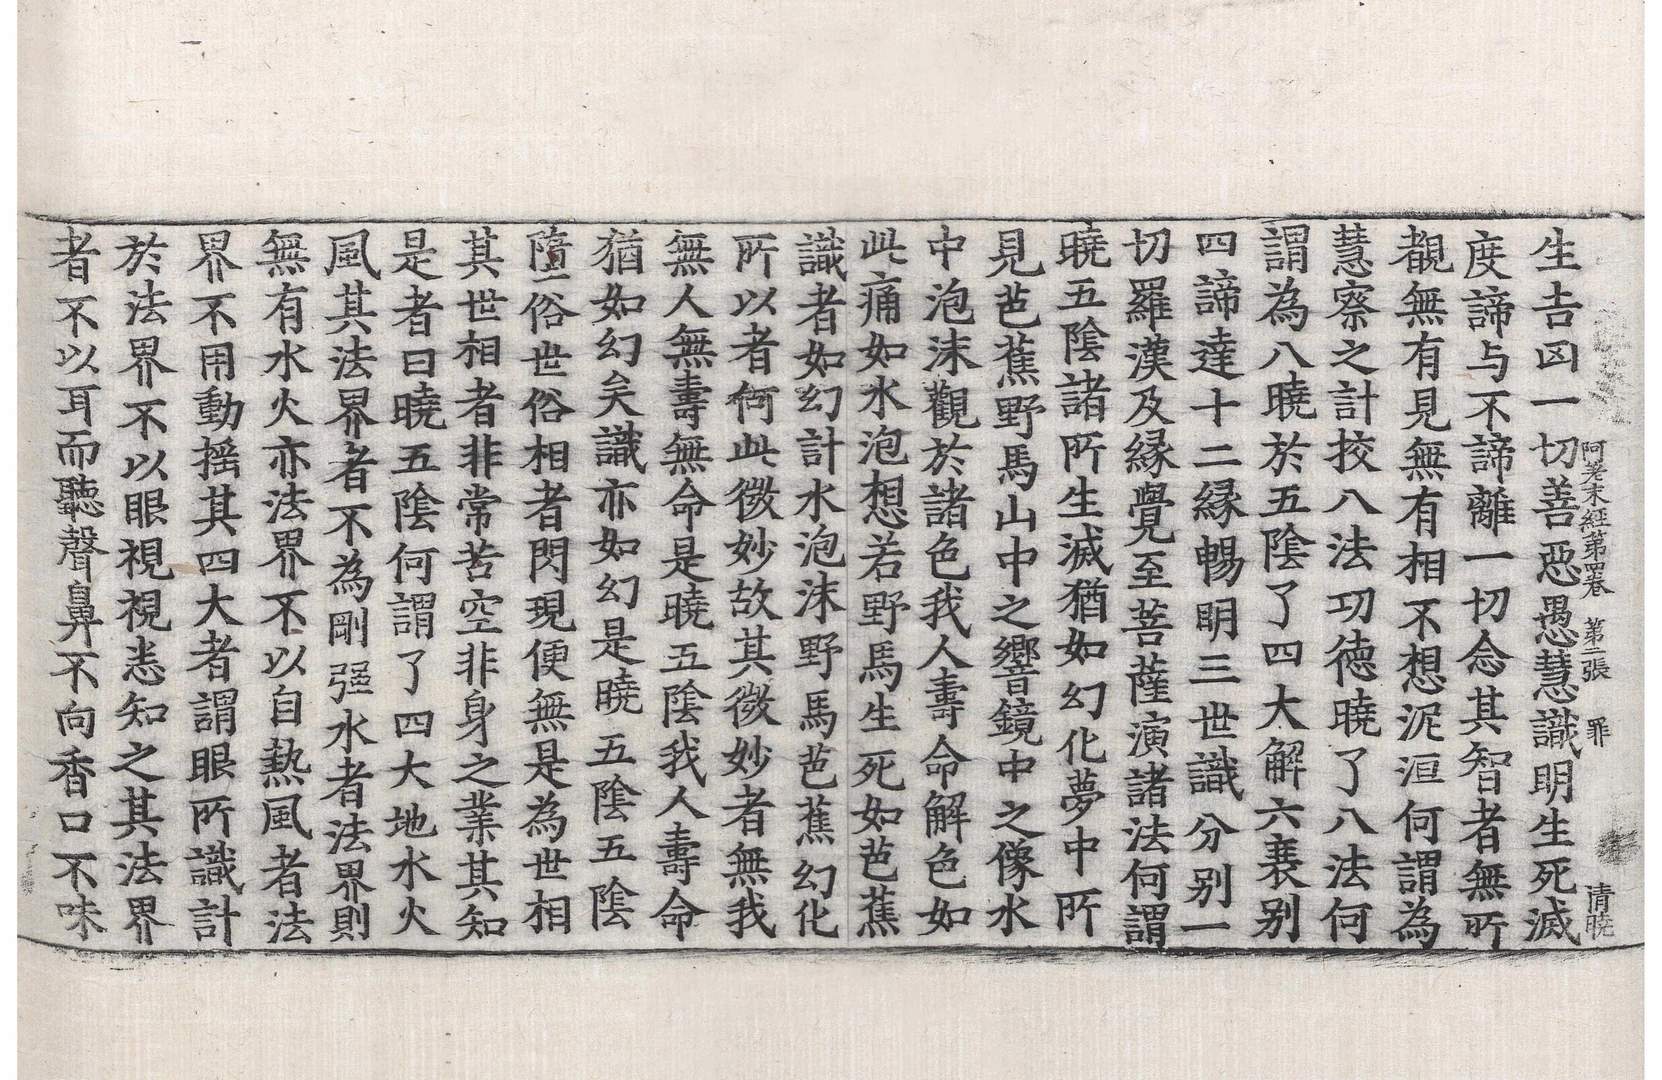 阿差末經第四卷　第二張　罪　清曉
生吉凶一切善惡愚慧識明生死滅
度諦与不諦離一切念其智者無所
覩無有見無有相不想泥洹何謂為
慧察之計挍八法功德曉了八法何
謂為八曉於五陰了四大解六衰別
四諦達十二緣暢明三世識分別一
切羅漢及緣覺至菩薩演諸法何謂
曉五陰諸所生滅猶如幻化夢中所
見芭蕉野馬山中之響鏡中之像水
中泡沫觀於諸色我人壽命解色如
此痛如水泡想若野馬生死如芭蕉
識者如幻計水泡沫野馬芭蕉幻化
所以者何此微妙故其微妙者無我
無人無壽無命是曉五陰我人壽命
猶如幻矣識亦如幻是曉五陰五陰
墮俗世俗相者閃現便無是為世相
其世相者非常苦空非身之業其知
是者曰曉五陰何謂了四大地水火
風其法界者不為剛强水者法界則
無有水火亦法界不以自熱風者法
界不用動搖其四大者謂眼所識計
於法界不以眼視視恚知之其法界
者不以耳而聽聲鼻不向香口不味